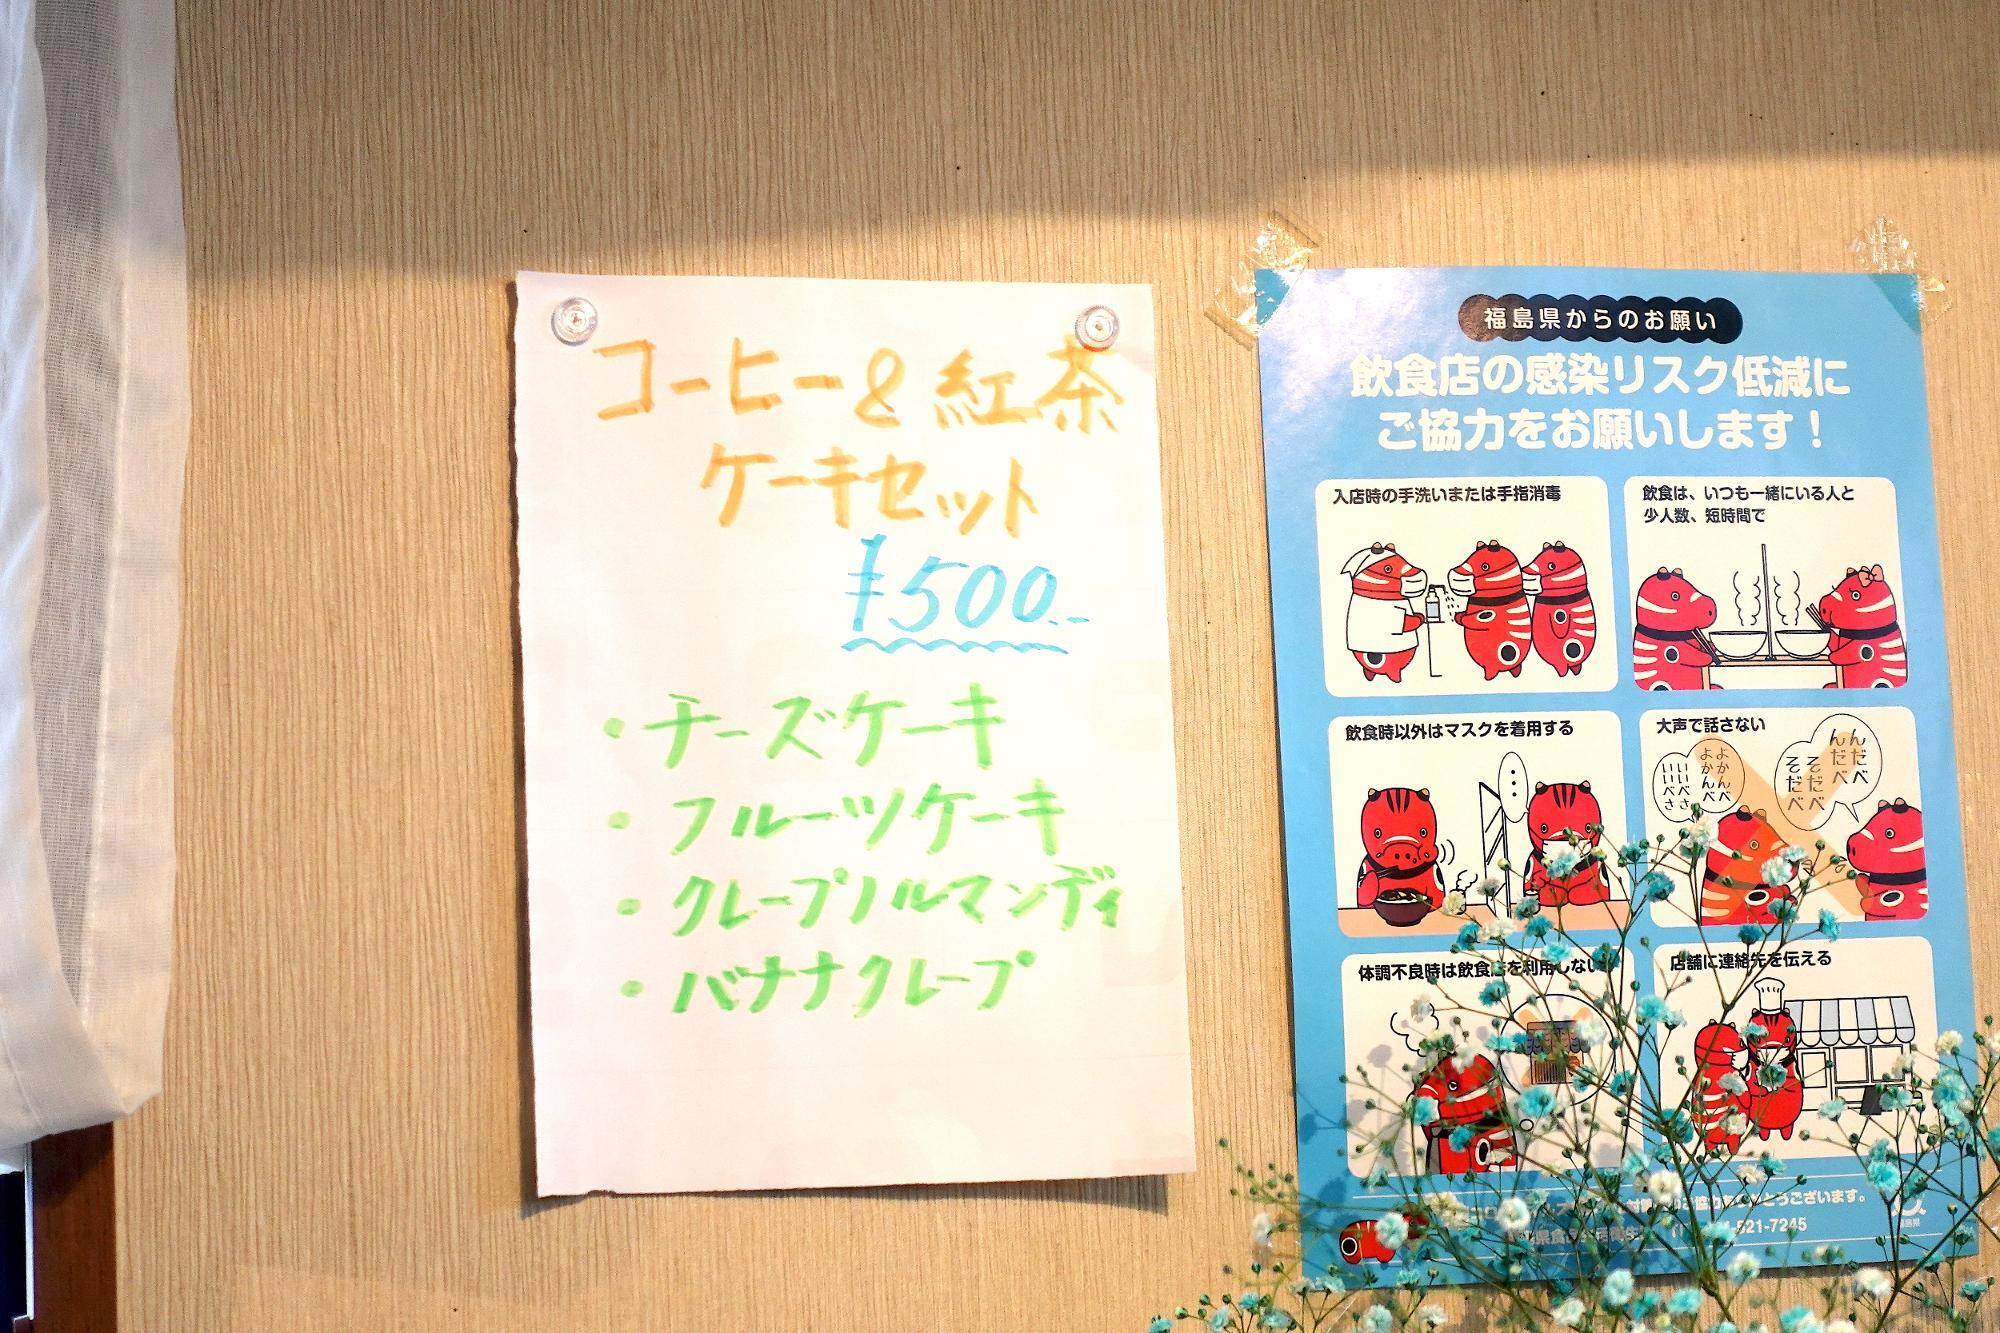 コーヒー&紅茶
ケーキセット
¥500.-
・チーズケーキ
・フルーツケーキ
・クレープノルマンディ
・バナナクレープ
福島県からのお願い
飲食店の感染リスク低減に
ご協力をお願いします！
入店時の手洗いまたは手指消毒
飲食は、いつも一緒にいる人と
少人数、短時間で
飲食時以外はマスクを着用する
…
大声で話さない
よかんべ
よかんべ
いいべさ
いいべさ
んだべ
んだべ
そだべ
そだべ
体調不良時は飲食店を利用しない
店舗に連絡先を伝える
ご協力ありがとうございます。
521-7245
福島県